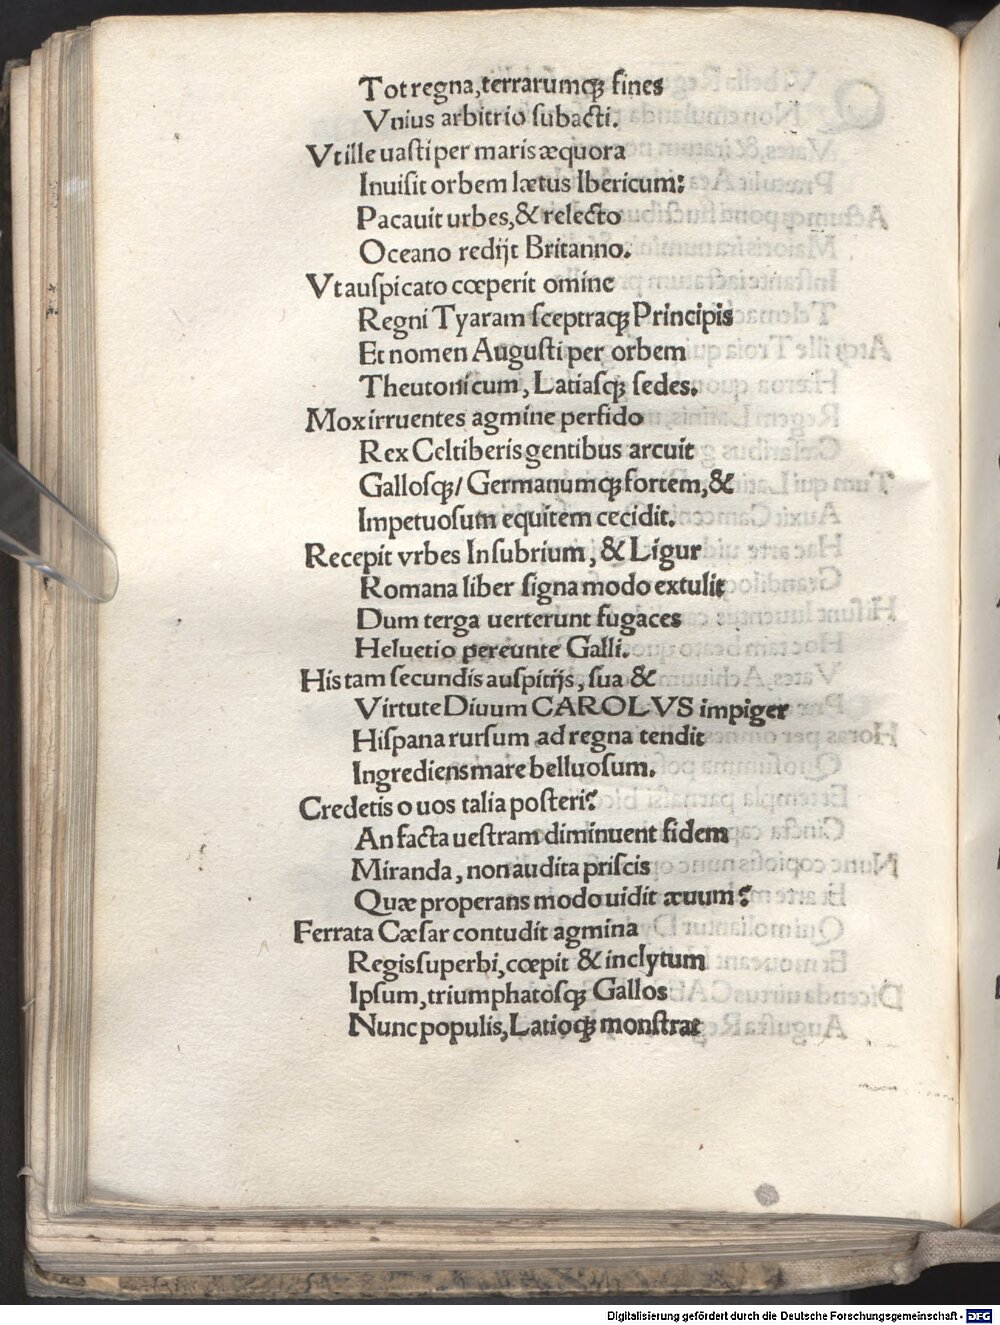 Tot regna,terrarumqꝫ fines
Vnius arbitrio ſubacti.
Vt ille uaſti per maris æquora
Inuiſit orbem lætus Ibericum:
Pacauit urbes,& relecto
Oceano redijt Britanno.
Vt auſpicato cœperit omine
Regni Tyaram ſceptraqꝫ Principis
Et nomen Auguſti per orbem
Theutonicum, Latiaſqꝫ ſedes.
Mox irruentes agmine perfido
Rex Celtiberis gentibus arcuit
Galloſqꝫ/ Germanumqꝫ fortem,&
Impetuoſum equitem cecidit.
Recepit vrbes Inſubrium, & Ligur
Romana liber ſigna modo extulit
Dum terga uerterunt fugaces
Heluetio pereunte Galli.
His tam ſecundis auſpitijs, ſua &
Virtute Diuum CAROLVS impiger
Hiſpana rurſum ad regna tendit
Ingrediens mare belluoſum.
Credetis o uos talia poſteri?
An facta ueſtram diminuent fidem
Miranda, non audita priſcis
Quæ properans modo uidit æuum?
Ferrata Cæſar contudit agmina
Regis ſuperbi,cœpit & inclytum
Ipſum,triumphatoſqꝫ Gallos
Nunc populis,Latioqꝫ monſtrat
Digitalisierung gefördert durch die Deutsche Forschungsgemeinschaft - DFG